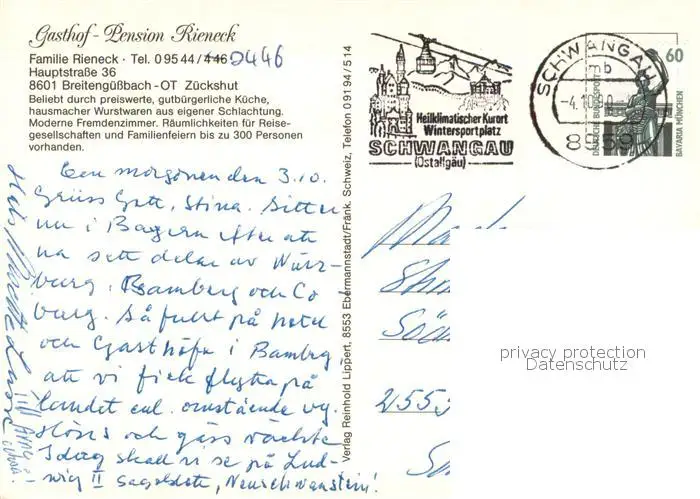 Gasthof - Pension Rieneck
Familie Rieneck · Tel. 0 95 44 / 446 0446
Hauptstraße 36
8601 Breitengüßbach - OT Zückshut
Beliebt durch preiswerte, gutbürgerliche Küche,
hausmacher Wurstwaren aus eigener Schlachtung.
Moderne Fremdenzimmer. Räumlichkeiten für Reise-
gesellschaften und Familienfeiern bis zu 300 Personen
vorhanden.
morgonen den 3.10.
Grüss Gott, Stina. Sitter
nu i Bayern efter att
ha sett delar av Würz-
burg, Bamberg och Co
burg. Så fullt på hotell
och Gasthöfe i Bamberg
att vi fick flytta på
landet enl. omstående
och gäss
Idag skall vi se på Lud-
wig II sagoslott, Neuschwanstein!
Verlag Reinhold Lippert, 8553 Ebermannstadt/Fränk. Schweiz, Telefon 0 91 94 / 5 14
Heilklimatischer Kurort
Wintersportplatz
SCHWANGAU
(Ostallgäu)
SCHWANGAU
mb
-4.10.90
8959
60
DEUTSCHE BUNDESPOST
BAVARIA MÜNCHEN
2553
privacy protection
Datenschutz